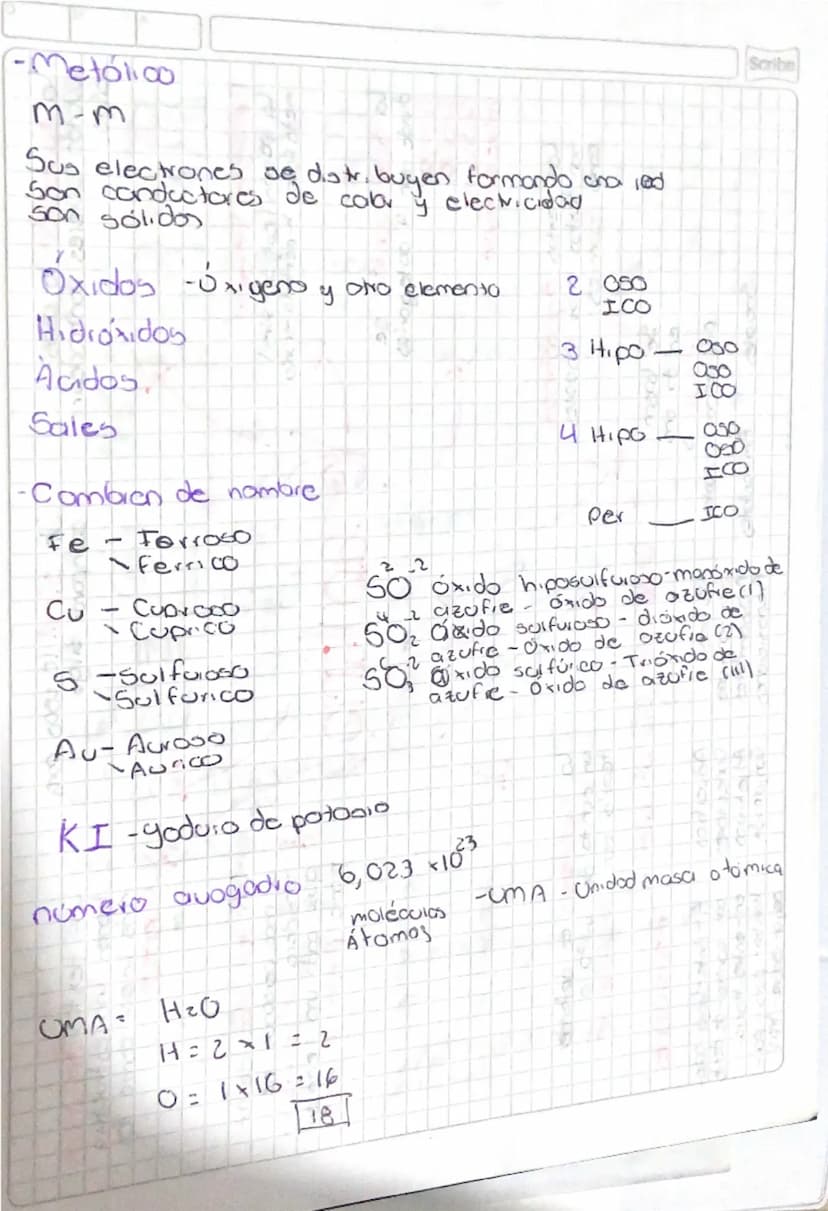 Scribe
-Metálico
M-M
Sus electrones se distribuyen formando una red
Son conductores de calor y electricidad
son sólidos
Óxidos -Óxigeno y otro elemento
Hidróxidos
Ácidos.
Sales
2 OSO
ICO
3 Hipo — OSO
OSO
ICO
4 Hipo — OSO
OSO
ICO
Per — ICO
-Cambian de nombre
Fe - Ferroso
- Ferrico
Cu - Cuproso
- Cuprico
S - Sulfuroso
- Sulfurico
Au - Auroso
- Aurico
2 -2
SO óxido hiposulfuroso-monóxido de
azufre - óxido de azufre (1)
4 -2
SO2 óxido sulfuroso - dióxido de
azufre - Óxido de azufre (2)
6 -2
SO3 óxido sulfúrico - Trióxido de
azufre - Óxido de azufre (III)
KI - yoduro de potasio
número avogadro 6,023 x10^23
moléculas
Átomos
-UMA - Unidad masa atómica
UMA = H2O
H = 2 x 1 = 2
O = 1 x 16 = 16
18